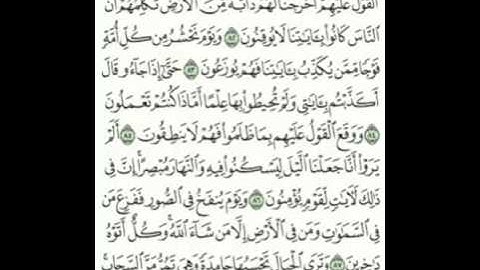 القول عليهم أخرجنا لهم دابة من الأرض تكلمهم أن
ٱلنَّاسَ كَانُوا۟ بِـَٔايَـٰتِنَا لَا يُوقِنُونَ ٨٢ وَيَوْمَ نَحْشُرُ مِن كُلِّ أُمَّةٍ
فَوْجًا مِّمَّن يُكَذِّبُ بِـَٔايَـٰتِنَا فَهُمْ يُوزَعُونَ ٨٣ حَتَّىٰٓ إِذَا جَآءُو قَالَ
أَكَذَّبْتُم بِـَٔايَـٰتِى وَلَمْ تُحِيطُوا۟ بِهَا عِلْمًا أَمَّاذَا كُنتُمْ تَعْمَلُونَ
٨٤ وَوَقَعَ ٱلْقَوْلُ عَلَيْهِم بِمَا ظَلَمُوا۟ فَهُمْ لَا يَنطِقُونَ ٨٥ أَلَمْ
يَرَوْا۟ أَنَّا جَعَلْنَا ٱلَّيْلَ لِيَسْكُنُوا۟ فِيهِ وَٱلنَّهَارَ مُبْصِرًا ۚ إِنَّ فِى
ذَٰلِكَ لَـَٔايَـٰتٍ لِّقَوْمٍ يُؤْمِنُونَ ٨٦ وَيَوْمَ يُنفَخُ فِى ٱلصُّورِ فَفَزِعَ مَن
فِى ٱلسَّمَـٰوَٰتِ وَمَن فِى ٱلْأَرْضِ إِلَّا مَن شَآءَ ٱللَّهُ ۚ وَكُلٌّ أَتَوْهُ
دَٰخِرِينَ ٨٧ وَتَرَى ٱلْجِبَالَ تَحْسَبُهَا جَامِدَةً وَهِىَ تَمُرُّ مَرَّ ٱلسَّحَابِ ۚ